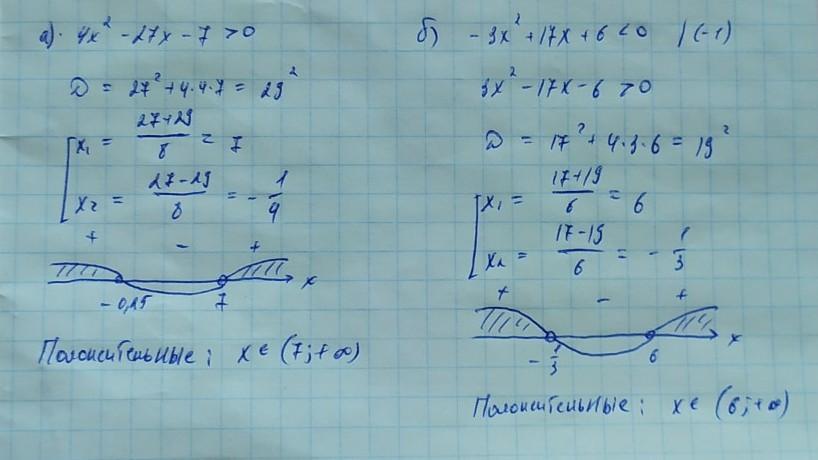 а). 4x² - 27x - 7 > 0
D = 27² + 4·4·7 = 29²
x₁ = (27+29)/8 = 7
x₂ = (27-29)/8 = -1/4
+ - +
-0,25 7 x
Положительные: x ∈ (7; +∞)
б) -3x² + 17x + 6 < 0 | (-1)
3x² - 17x - 6 > 0
D = 17² + 4·3·6 = 19²
x₁ = (17+19)/6 = 6
x₂ = (17-19)/6 = -1/3
+ - +
-1/3 6 x
Положительные: x ∈ (6; +∞)